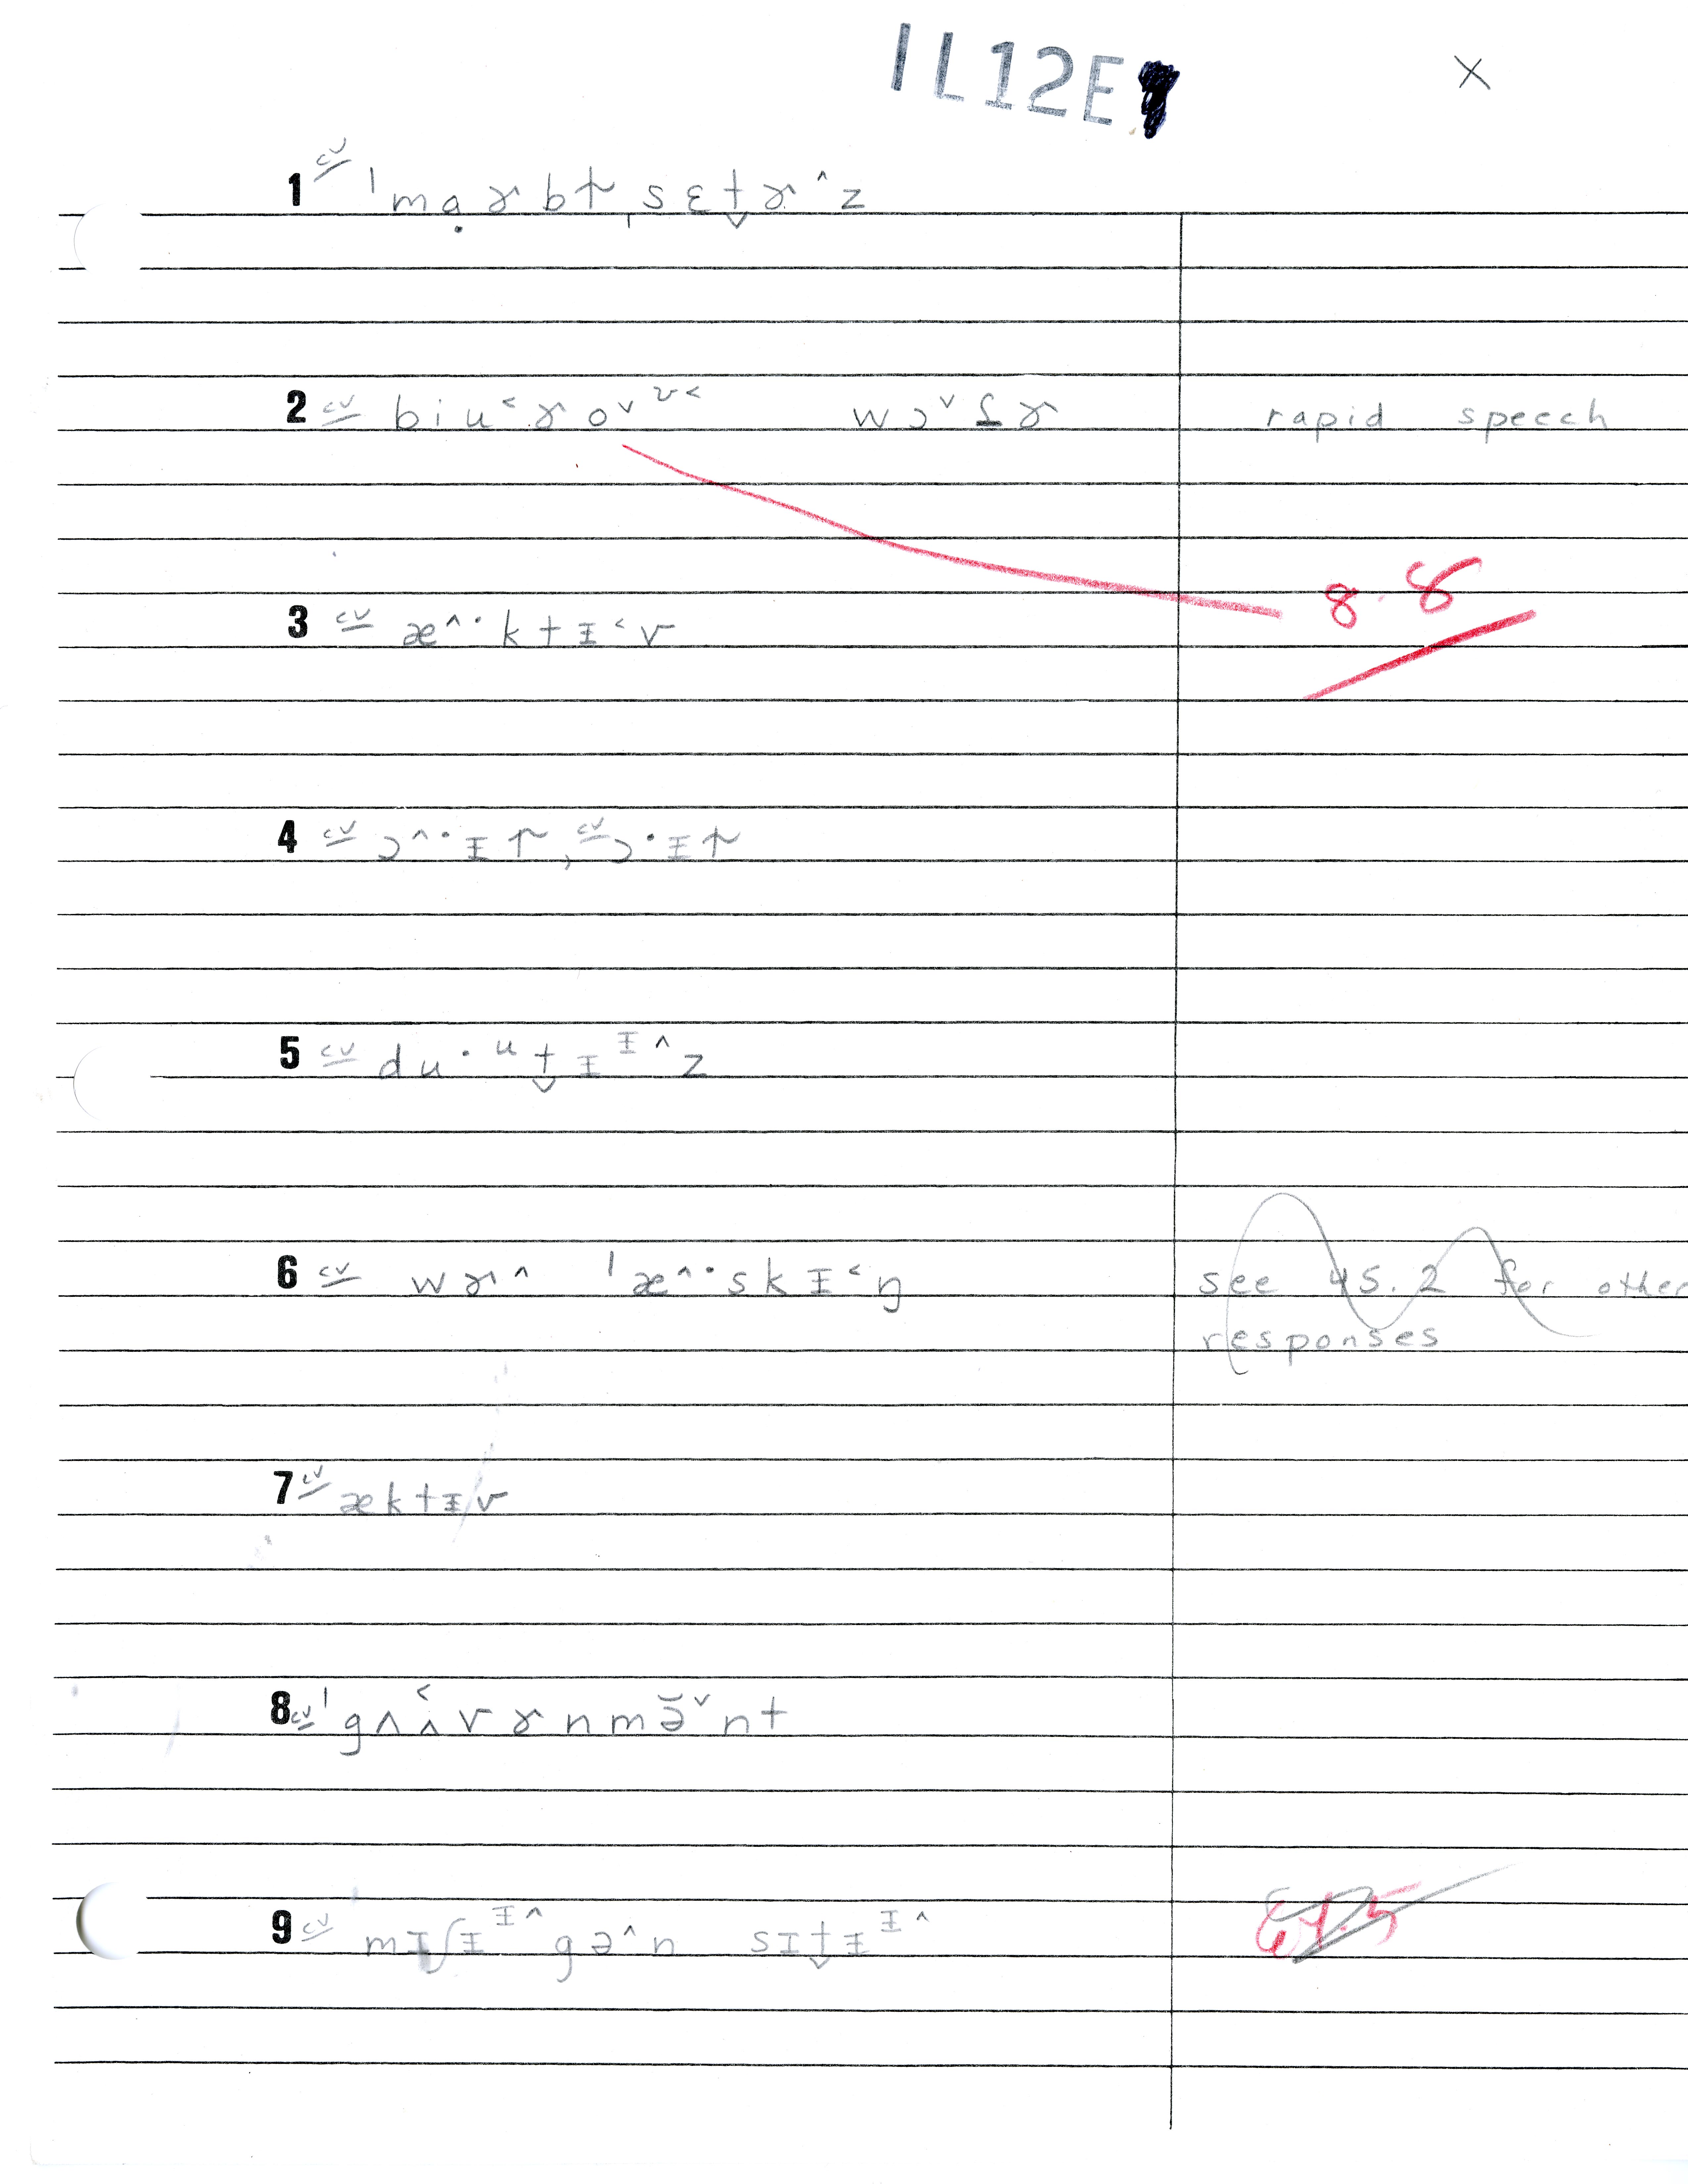 1L12E
X
1 cv ˈmạɚbɫ̩ˌsɛt̬ɚ^z
2 cv biu˂ɚoˇʊ˂ wɔˇʃɚ rapid speech
8.8
3 cv æ^·ktɪ˂v
4 cv ɔ^·ɪɫ, cv ɔ·ɪɫ
5 cv du·ᵘt̬ɪᶧ^z
6 cv wɚ^ ˈæ^·skɪ˂ŋ see 45.2 for other
responses
7 cv æktɪv
8 cv ˈgʌʌ̯˂vɚnmə̆ˇnt
9 cv mɪʃɪᶧ^gə^n sɪt̬ɪᶧ^